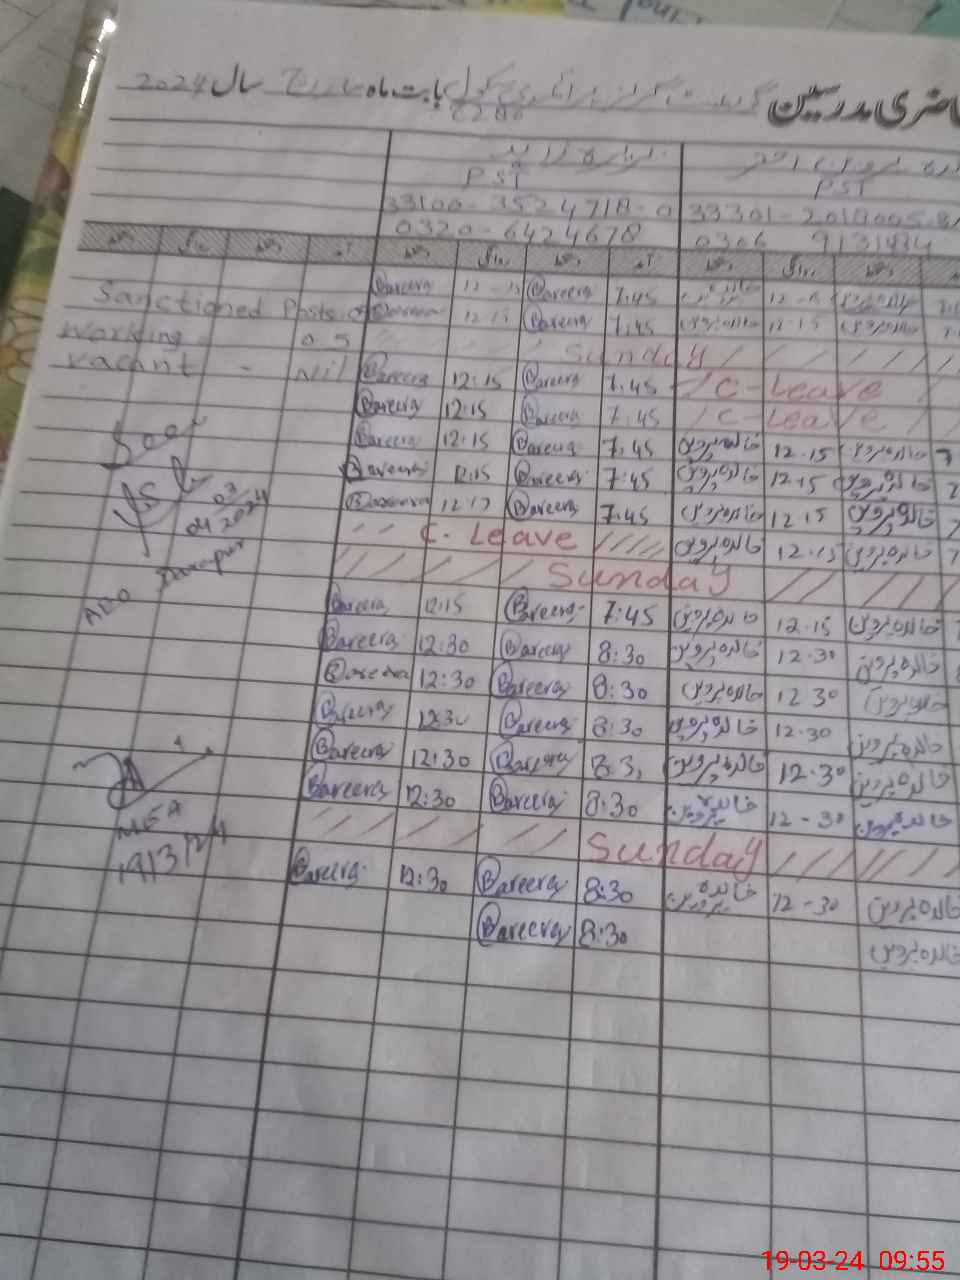 حاضری مدرسین گورنمنٹ گرلز پرائمری سکول بابت ماہ مارچ سال 2024
PST PST
33100-3524718-0 33301-2018005-8
0320-6424678 0306 9131434
دستخط روانگی دستخط آمد دستخط روانگی دستخط آمد دستخط روانگی دستخط
Bareera 12-15 Bareera 7.45 خالدہ پروین 12-15 خالدہ پروین
Sanctioned Posts Bareera 12.15 Bareera 7.45 خالدہ پروین 12.15 خالدہ پروین
Working 05 Sunday
Vacant - Nil Bareera 12.15 Bareera 7.45 C-Leave
Bareera 12.15 Bareera 7.45 C-Leave
Seen Bareera 12.15 Bareera 7.45 خالدہ پروین 12.15 خالدہ پروین
Bareera 12.15 Bareera 7.45 خالدہ پروین 12.15 خالدہ پروین
04 03 2024 Bareera Bareera 7.45 خالدہ پروین 12.15 خالدہ پروین
C. Leave خالدہ پروین 12.15 خالدہ پروین
Sunday
Bareera 12.15 Bareera 7:45 خالدہ پروین 12.15 خالدہ پروین
Bareera 12:30 Bareera 8:30 خالدہ پروین 12.30 خالدہ پروین
Bareera 12:30 Bareera 8:30 خالدہ پروین 12 30 خالدہ پروین
Bareera 12:30 Bareera 8:30 خالدہ پروین 12.30 خالدہ پروین
Bareera 12:30 Bareera 8:3 خالدہ پروین 12.30 خالدہ پروین
Bareera 12:30 Bareera 8:30 خالدہ پروین 12-30 خالدہ پروین
MEA Sunday
19/3/24 Bareera 12:30 Bareera 8:30 خالدہ پروین 12-30 خالدہ پروین
Bareera 8:30 خالدہ پروین
19-03-24 09:55